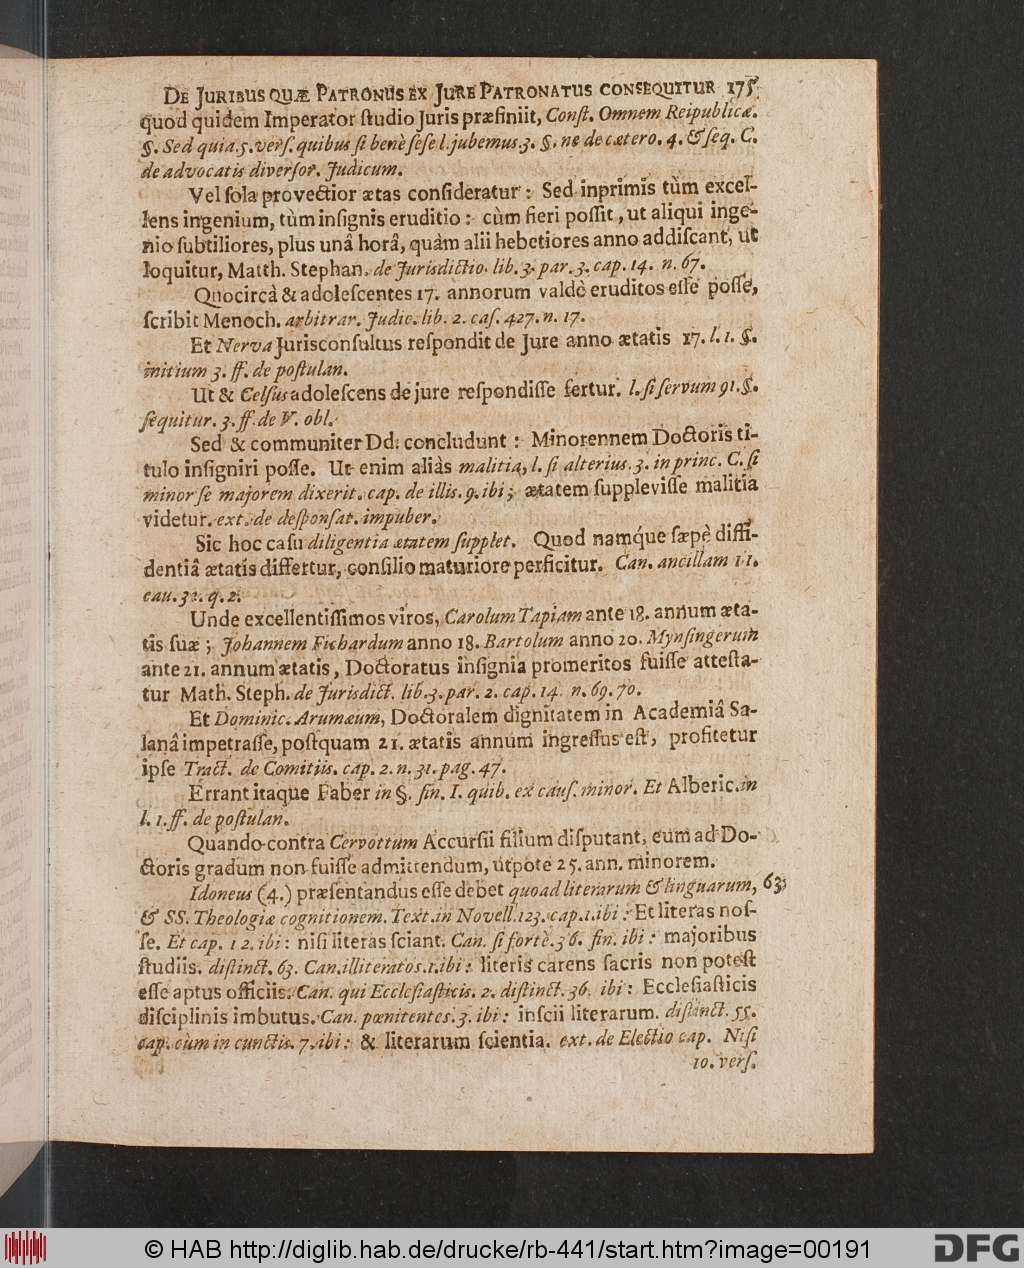 De Juribus quæ Patronus ex Jure Patronatus consequitur 175
quod quidem Imperator ſtudio Juris præfiniit, Conſt. Omnem Reipublicæ.
§. Sed quia.5. verſ. quibus ſi benè ſeſe l. jubemus.3. §. ne de cætero. 4. & ſeq. C.
de advocatis diverſor. Judicum.
Vel ſola provectior ætas conſideratur: Sed inprimis tùm excel-
lens ingenium, tùm inſignis eruditio: cùm fieri poſſit, ut aliqui inge-
nio ſubtiliores, plus unâ horâ, quàm alii hebetiores anno addiſcant, ut
loquitur, Matth. Stephan. de Jurisdictio. lib. 3. par. 3. cap. 14. n. 67.
Quocircà & adoleſcentes 17. annorum valdè eruditos eſſe poſſe,
ſcribit Menoch. arbitrar. Judic. lib. 2. caſ. 427. n. 17.
Et Nerva Jurisconſultus reſpondit de Jure anno ætatis 17. l. 1. §.
initium 3. ff. de poſtulan.
Ut & Celſus adoleſcens de jure reſpondiſſe fertur. l. ſi ſervum 91. §.
ſequitur. 3. ff. de V. obl.
Sed & communiter Dd. concludunt: Minorennem Doctoris ti-
tulo inſigniri poſſe. Ut enim aliàs malitia, l. ſi alterius. 3. in princ. C. ſi
minor ſe majorem dixerit. cap. de illis. 9. ibi; ætatem ſuppleviſſe malitia
videtur. ext. de deſponſat. impuber.
Sic hoc caſu diligentia ætatem ſupplet. Quod namque ſæpè diffi-
dentiâ ætatis differtur, conſilio maturiore perficitur. Can. ancillam 11.
cau. 32. q. 2.
Unde excellentiſſimos viros, Carolum Tapiam ante 18. annum æta-
tis ſuæ; Johannem Fichardum anno 18. Bartolum anno 20. Mynſingerum
ante 21. annum ætatis, Doctoratus inſignia promeritos fuiſſe atteſta-
tur Math. Steph. de Jurisdict. lib. 3. par. 2. cap. 14. n. 69. 70.
Et Dominic. Arumæum, Doctoralem dignitatem in Academiâ Sa-
lanâ impetraſſe, poſtquam 21. ætatis annum ingreſſus eſt, profitetur
ipſe Tract. de Comitiis. cap. 2. n. 31. pag. 47.
Errant itaque Faber in §. fin. I. quib. ex cauſ. minor. Et Alberic. in
l. 1. ff. de poſtulan.
Quando contra Cervottum Accurſii filium diſputant, eum ad Do-
ctoris gradum non fuiſſe admittendum, utpote 25. ann. minorem.
Idoneus (4.) præſentandus eſſe debet quoad literarum & linguarum, 63
& SS. Theologiæ cognitionem. Text. in Novell. 123. cap. 1. ibi: Et literas noſ-
ſe. Et cap. 12. ibi: niſi literas ſciant. Can. ſi fortè. 36. fin. ibi: majoribus
ſtudiis. diſtinct. 63. Can. illiteratos. 1. ibi: literis carens ſacris non poteſt
eſſe aptus officiis. Can. qui Eccleſiaſticis. 2. diſtinct. 36. ibi: Eccleſiaſticis
diſciplinis imbutus. Can. pœnitentes. 3. ibi: inſcii literarum. diſtinct. 55.
cap. cùm in cunctis. 7. ibi: & literarum ſcientia. ext. de Electio cap. Niſi
10. verſ.
© HAB http://diglib.hab.de/drucke/rb-441/start.htm?image=00191
DFG